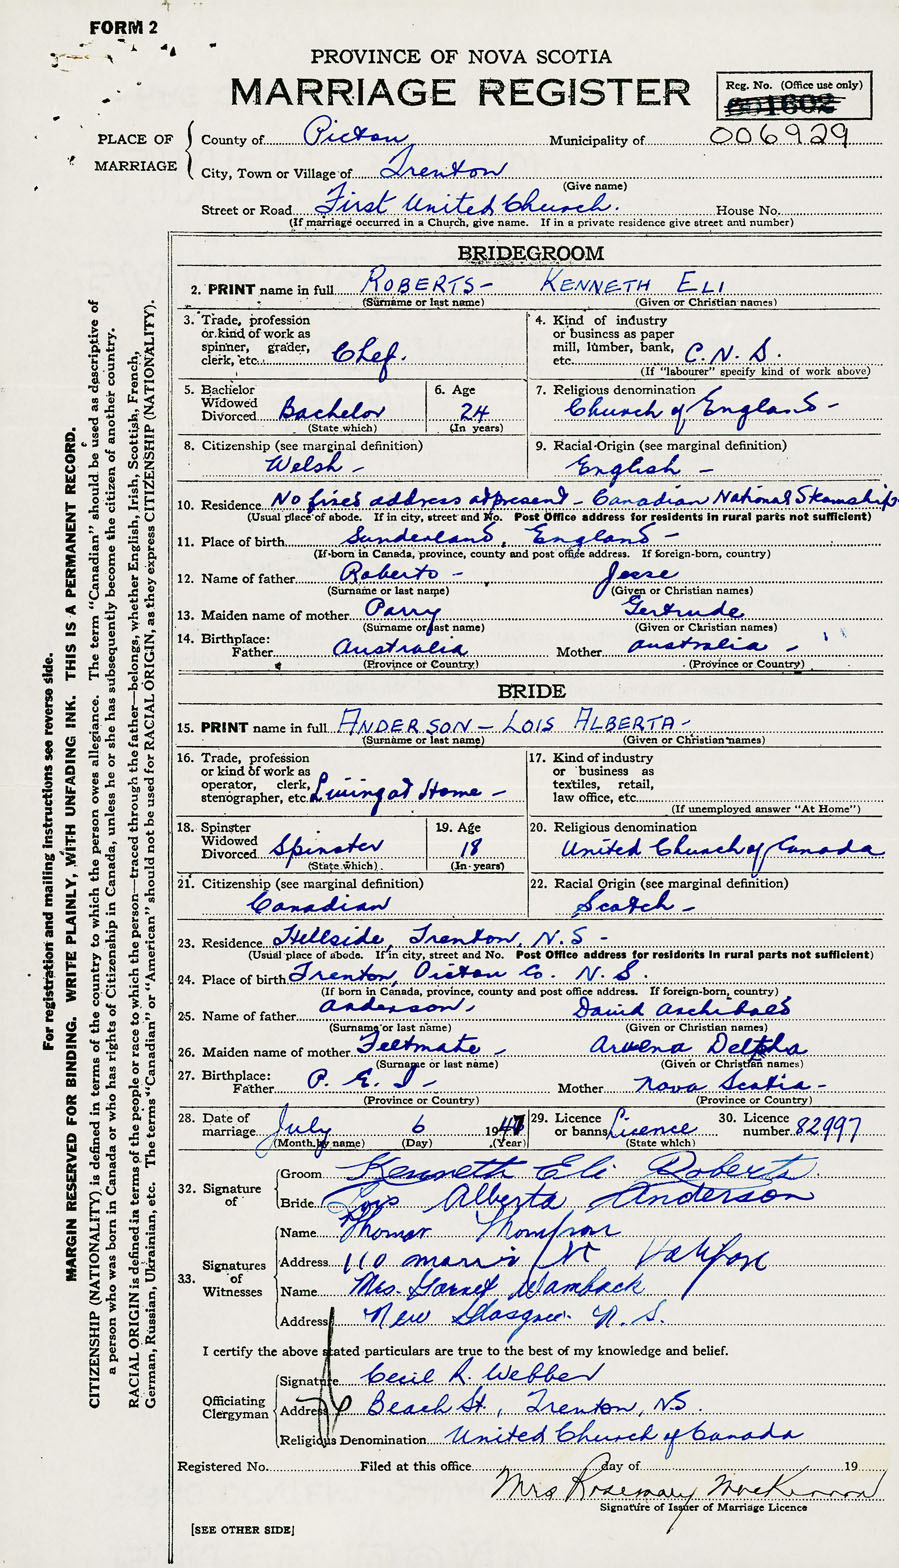 FORM 2
PROVINCE OF NOVA SCOTIA
MARRIAGE REGISTER
Reg. No. (Office use only)
001602
006929
PLACE OF MARRIAGE
County of Pictou Municipality of
City, Town or Village of Trenton
(Give name)
Street or Road First United Church. House No.
(If marriage occurred in a Church, give name. If in a private residence give street and number)
BRIDEGROOM
2. PRINT name in full ROBERTS - KENNETH ELI
(Surname or last name) (Given or Christian names)
3. Trade, profession or kind of work as spinner, grader, clerk, etc. Chef.
4. Kind of industry or business as paper mill, lumber, bank, etc. C.N.S.
(If "labourer" specify kind of work above)
5. Bachelor Widowed Divorced Bachelor
(State which)
6. Age 24
(In years)
7. Religious denomination
Church of England -
8. Citizenship (see marginal definition)
Welsh -
9. Racial Origin (see marginal definition)
English -
10. Residence No fixed address at present - Canadian National Steamships
(Usual place of abode. If in city, street and No. Post Office address for residents in rural parts not sufficient)
11. Place of birth Sunderland, England -
(If born in Canada, province, county and post office address. If foreign-born, country)
12. Name of father Roberts - Jesse
(Surname or last name) (Given or Christian names)
13. Maiden name of mother Parry Gertrude
(Surname or last name) (Given or Christian names)
14. Birthplace:
Father Australia Mother Australia -
(Province or Country) (Province or Country)
BRIDE
15. PRINT name in full ANDERSON - LOIS ALBERTA -
(Surname or last name) (Given or Christian names)
16. Trade, profession or kind of work as operator, clerk, stenographer, etc. Living at Home -
17. Kind of industry or business as textiles, retail, law office, etc.
(If unemployed answer "At Home")
18. Spinster Widowed Divorced Spinster
(State which)
19. Age 18
(In years)
20. Religious denomination
United Church of Canada
21. Citizenship (see marginal definition)
Canadian
22. Racial Origin (see marginal definition)
Scotch -
23. Residence Hillside, Trenton, N.S -
(Usual place of abode. If in city, street and No. Post Office address for residents in rural parts not sufficient)
24. Place of birth Trenton, Pictou Co. N.S.
(If born in Canada, province, county and post office address. If foreign-born, country)
25. Name of father Anderson, David Archibald
(Surname or last name) (Given or Christian names)
26. Maiden name of mother Feltmate - Delpha
(Surname or last name) (Given or Christian names)
27. Birthplace:
Father P.E.I - Mother Nova Scotia -
(Province or Country) (Province or Country)
28. Date of marriage July 6 1947
(Month by name) (Day) (Year)
29. Licence or banns Lisence
(State which)
30. Licence number 82997
32. Signature of
Groom Kenneth Eli Roberts
Bride Lois Alberta Anderson
33. Signatures of Witnesses
Name Thomas Thompson
Address 110 Morris St Halifax
Name Mrs. Garnet Wambach
Address New Glasgow N.S.
I certify the above stated particulars are true to the best of my knowledge and belief.
Officiating Clergyman
Signature Cecil R. Webber
Address Beach St., Trenton, NS.
Religious Denomination United Church of Canada
Registered No. Filed at this office day of 19
Mrs Rosemary MacKinnon
Signature of Issuer of Marriage Licence
[SEE OTHER SIDE]
For registration and mailing instructions see reverse side.
MARGIN RESERVED FOR BINDING. WRITE PLAINLY, WITH UNFADING INK. THIS IS A PERMANENT RECORD.
CITIZENSHIP (NATIONALITY) is defined in terms of the country to which the person owes allegiance. The term "Canadian" should be used as descriptive of
a person who was born in Canada or who has rights of Citizenship in Canada, unless he or she has subsequently become the citizen of another country.
RACIAL ORIGIN is defined in terms of the people or race to which the person—traced through the father—belongs, whether English, Irish, Scottish, French,
German, Russian, Ukrainian, etc. The terms "Canadian" or "American" should not be used for RACIAL ORIGIN, as they express CITIZENSHIP (NATIONALITY).